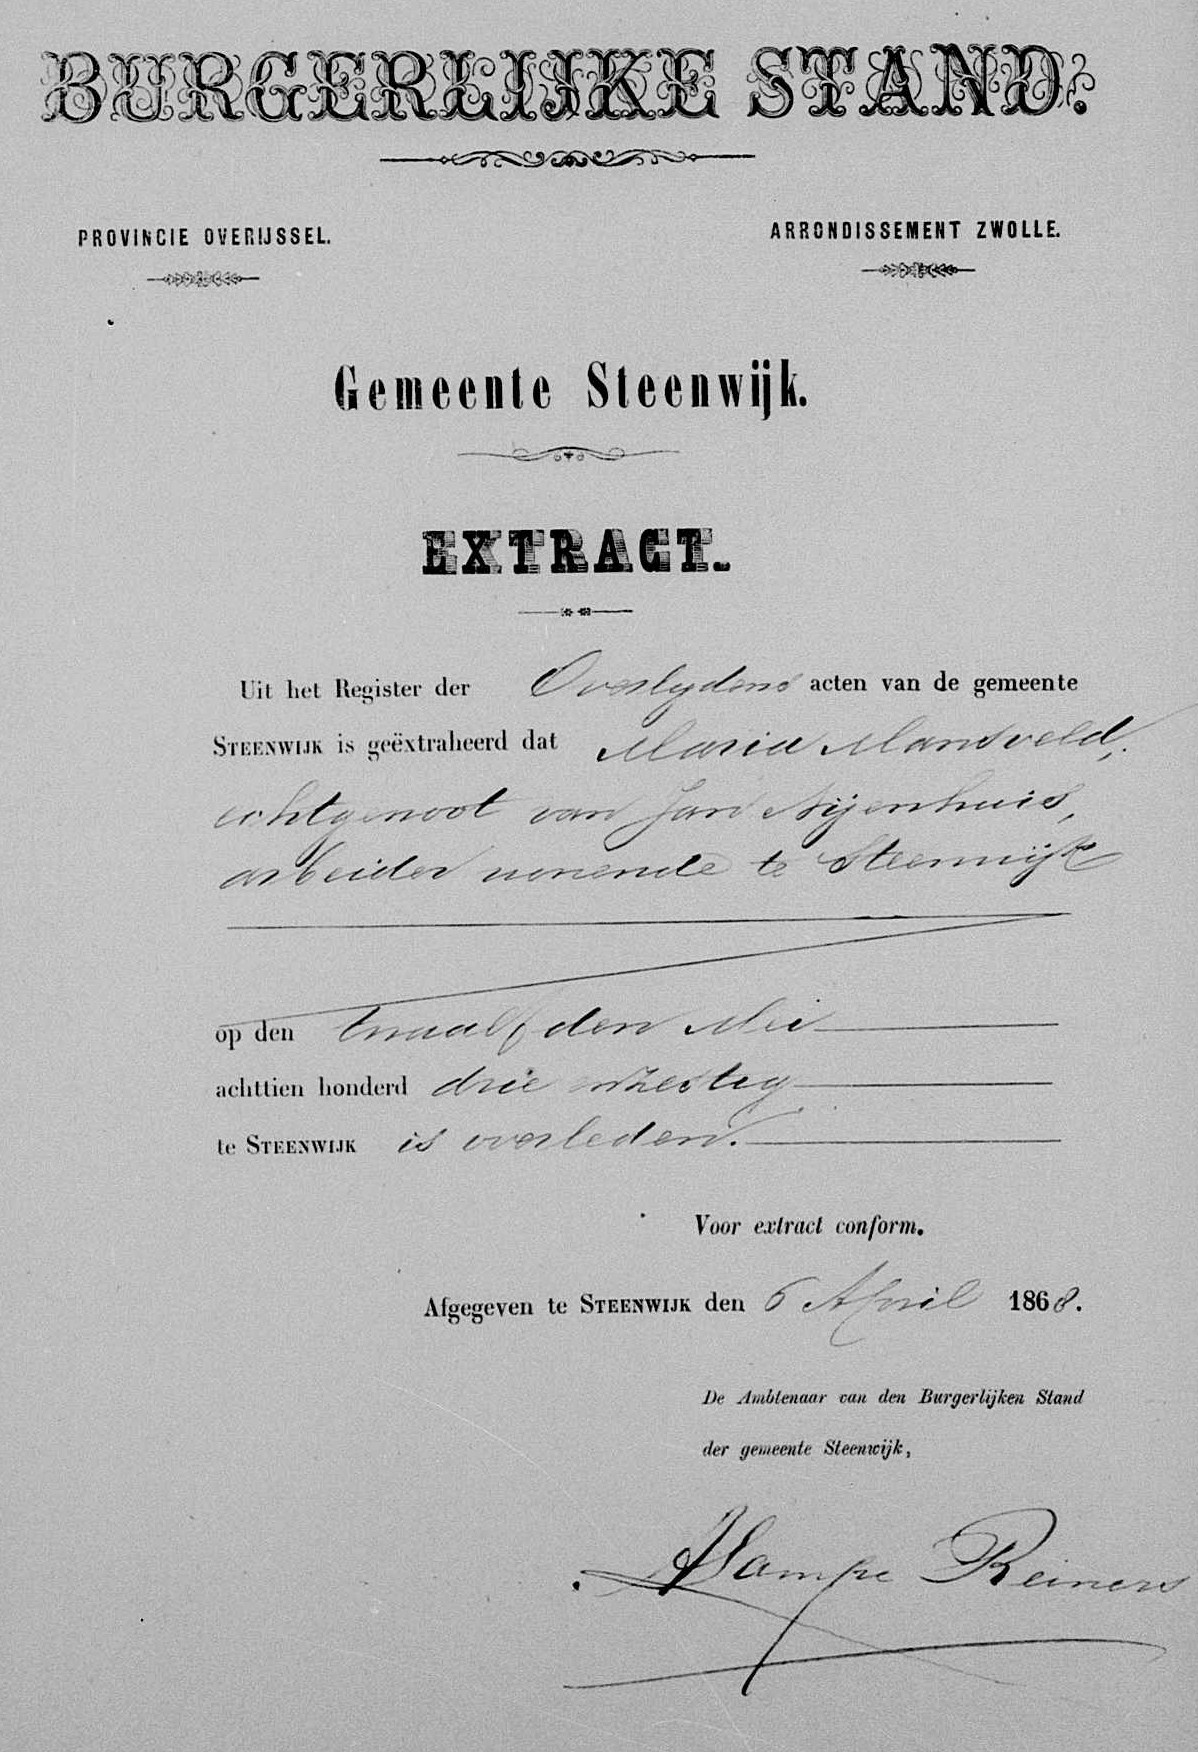 BURGERLIJKE STAND.
PROVINCIE OVERIJSSEL.
ARRONDISSEMENT ZWOLLE.
Gemeente Steenwijk.
EXTRACT.
Uit het Register der Overlydens acten van de gemeente
STEENWIJK is geëxtraheerd dat Maria Mansveld,
echtgenoot van Jan Nijenhuis,
arbeider wonende te Steenwijk
op den twaalfden Mei
achttien honderd drie zestig
te STEENWIJK is overleden.
Voor extract conform.
Afgegeven te STEENWIJK den 6 April 1868.
De Ambtenaar van den Burgerlijken Stand
der gemeente Steenwijk,
Reiners